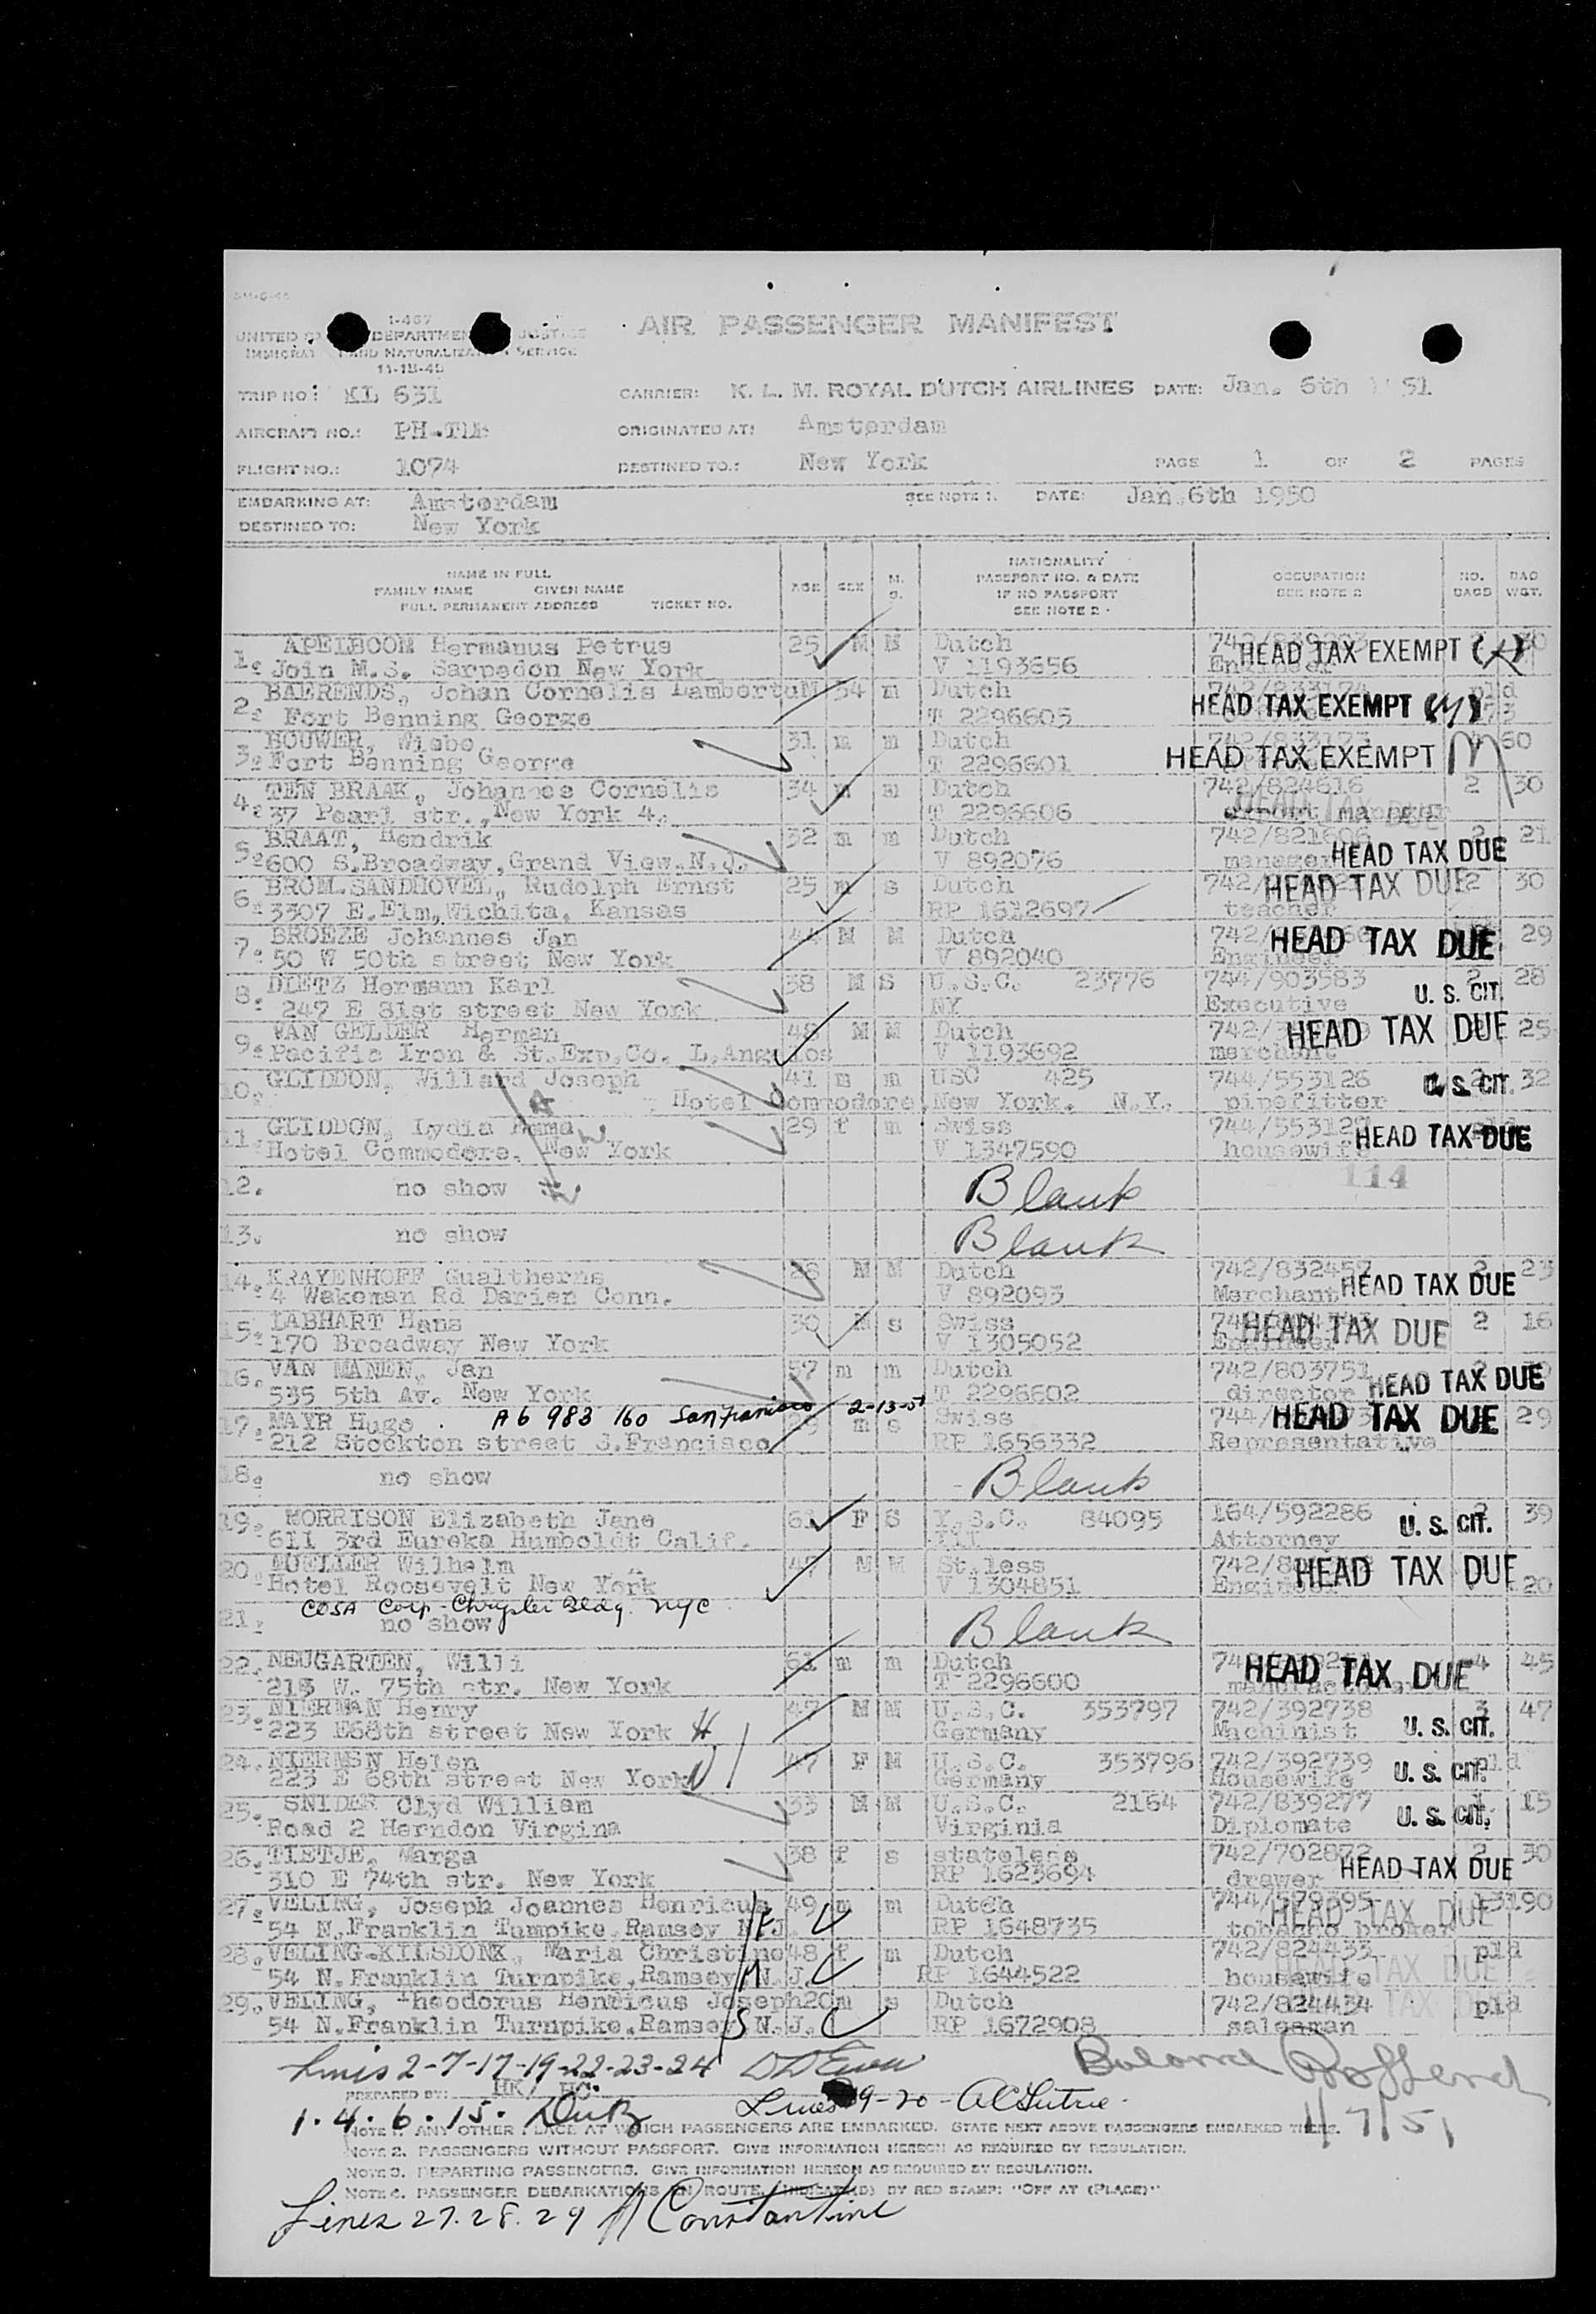 I-467
UNITED DEPARTMENT JUSTICE
IMMIGRAT AND NATURALIZATION SERVICE
11-18-48
AIR PASSENGER MANIFEST
TRIP NO: KL 631 CARRIER: K. L. M. ROYAL DUTCH AIRLINES DATE: Jan. 6th 51
AIRCRAFT NO.: ORIGINATED AT: Amsterdam
FLIGHT NO.: 1074 DESTINED TO.: New York PAGE 1 OF 2 PAGES
EMBARKING AT: Amsterdam SEE NOTE 1. DATE: Jan.6th 1950
DESTINED TO: New York
NAME IN FULL AGE SEX M. S. NATIONALITY OCCUPATION NO. BAG
FAMILY NAME GIVEN NAME PASSPORT NO. & DATE SEE NOTE 2 BAGS WGT.
FULL PERMANENT ADDRESS TICKET NO. IF NO PASSPORT
SEE NOTE 2
1. APELBOOM Hermanus Petrus 25 M M Dutch HEAD TAX EXEMPT
Join M.S. Sarpedon New York V 1193656 Engineer
2. BAERENDS, Johan Cornelis Lambertus 34 m Dutch pld
Fort Benning George T 2296605 HEAD TAX EXEMPT
3. BOUWER, Wiebo 31 m m Dutch 60
Fort Benning George T 2296601 HEAD TAX EXEMPT
4. TEN BRAAK, Johannes Cornelis 34 m m Dutch 742/824616 2 30
37 Pearl str., New York 4. T 2296606 HEAD TAX DUE
5. BRAAT, Hendrik 32 m m Dutch 742/821606 2 21
600 S.Broadway, Grand View. N.J. V 892076 manager HEAD TAX DUE
6. BROM.SANDHOVEL, Rudolph Ernst 25 m s Dutch HEAD TAX DUE 2 30
3307 E.Elm, Wichita, Kansas RP 1612697 teacher
7. BROEZE Johannes Jan 44 M M Dutch HEAD TAX DUE 29
50 W 50th street New York V 892040 Engineer
8. DIETZ Hermann Karl 38 M S U.S.C. 23776 744/903583 2 28
247 E 31st street New York NY Executive U. S. CIT.
9. VAN GELDER Herman 48 M M Dutch HEAD TAX DUE 25
Pacific Iron & St.Exp.Co. L.Angelos V 1193692 merchant
10. GLIDDON, Willard Joseph 41 m m USC 425 744/553126 U. S. CIT. 32
Hotel Commodore, New York. N.Y. pipefitter
11. GLIDDON, Lydia Emma 29 f m Swiss 744/553127
Hotel Commodore, New York V 1347590 housewife HEAD TAX DUE
12. no show Blank 114
13. no show Blank
14. KRAYENHOFF Gualtherus 28 M M Dutch 742/832457 2 23
4 Wakeman Rd Darien Conn. V 892093 Merchant HEAD TAX DUE
15. LABHART Hans 30 M s Swiss HEAD TAX DUE 2 16
170 Broadway New York V 1305052 Engineer
16. VAN MANEN, Jan 57 m m Dutch 742/803751
535 5th Av. New York T 2296602 director HEAD TAX DUE
A6 983 160 San Francisco 2-13-51
17. MAYR Hugo 29 m s Swiss HEAD TAX DUE 29
212 Stockton street S.Francisco RP 1656332 Representative
18. no show Blank
19. MORRISON Elizabeth Jane 61 F S Y.S.C. 84095 164/592286 2 39
611 3rd Eureka Humboldt Calif. Ill Attorney U. S. CIT.
20. MUELLER Wilhelm 47 M M St.less HEAD TAX DUE 20
Hotel Roosevelt New York V 1304851 Engineer
COSA Corp - Chrysler Bldg. NYC
21. no show Blank
22. NEUGARTEN, Willi 61 m m Dutch HEAD TAX DUE 4 45
215 W. 75th str. New York T 2296600
23. NIERMAN Henry 47 M M U.S.C. 353797 742/392738 3 47
223 E68th street New York Germany Machinist U. S. CIT.
24. NIERMSN Helen 47 F M U.S.C. 353796 742/392739 pld
223 E 68th street New York Germany Housewife U. S. CIT.
25. SNIDER Clyd William 33 M M U.S.C. 2164 742/839277 1 15
Road 2 Herndon Virgina Virginia Diplomate U. S. CIT.
26. TIETJE, Marga 38 f s stateless 742/702872 2 30
310 E 74th str. New York RP 1623694 drawer HEAD TAX DUE
27. VELING, Joseph Joannes Henricus 49 m m Dutch 744/579395 13 190
54 N.Franklin Turnpike, Ramsey N.J. RP 1648735 tobacco broker HEAD TAX DUE
28. VELING-KILSDONK, Maria Christine 48 f m Dutch 742/824433 pld
54 N.Franklin Turnpike, Ramsey N.J. RP 1644522 housewife HEAD TAX DUE
29. VELING, Theodorus Henricus Joseph 20 m s Dutch 742/824434 pld
54 N.Franklin Turnpike, Ramsey N.J. RP 1672908 salesman
Lines 2-7-17-19-22-23-24
PREPARED BY: HK/ HG.
Lines 9-20
1. 4. 6. 15. 1/7/51
NOTE 1. ANY OTHER PLACE AT WHICH PASSENGERS ARE EMBARKED. STATE NEXT ABOVE PASSENGERS EMBARKED THERE.
NOTE 2. PASSENGERS WITHOUT PASSPORT. GIVE INFORMATION HEREON AS REQUIRED BY REGULATION.
NOTE 3. DEPARTING PASSENGERS. GIVE INFORMATION HEREON AS REQUIRED BY REGULATION.
NOTE 4. PASSENGER DEBARKATIONS EN ROUTE, INDICATED BY RED STAMP: "OFF AT (PLACE)"
Lines 27. 28. 29 Constantine